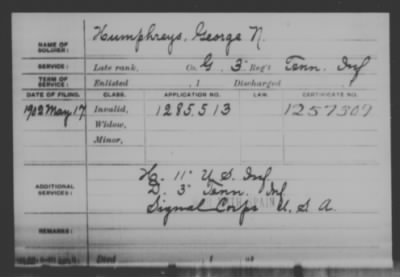 NAME OF SOLDIER: Humphreys, George N.
SERVICE: Late rank, Co. G. 3" Reg't Tenn. Inf
TERM OF SERVICE: Enlisted , 1 Discharged , 1
DATE OF FILING. CLASS. APPLICATION NO. LAW. CERTIFICATE NO.
1902 May 17 Invalid, 1285513 1257309
Widow,
Minor,
ADDITIONAL SERVICES: H. 11" U.S. Inf
D. 3" Tenn. Inf
Signal Corps U.S.A.
REMARKS:
Died , 1